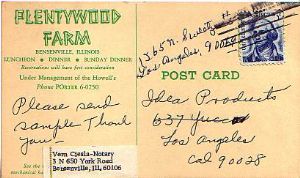 PLENTYWOOD
FARM
BENSENVILLE, ILLINOIS
LUNCHEON • DINNER • SUNDAY DINNER
Reservations will have first consideration
Under Management of the Howell's
Phone POrter 6-0250
Please send
sample Thank
you
See the
Vern Ciesla-Notary
3 N 650 York Road
Bensenville, Ill, 60106
1365 N.
Los Angeles, 900
POST CARD
Idea Products
637
Los Angeles
Cal 90028